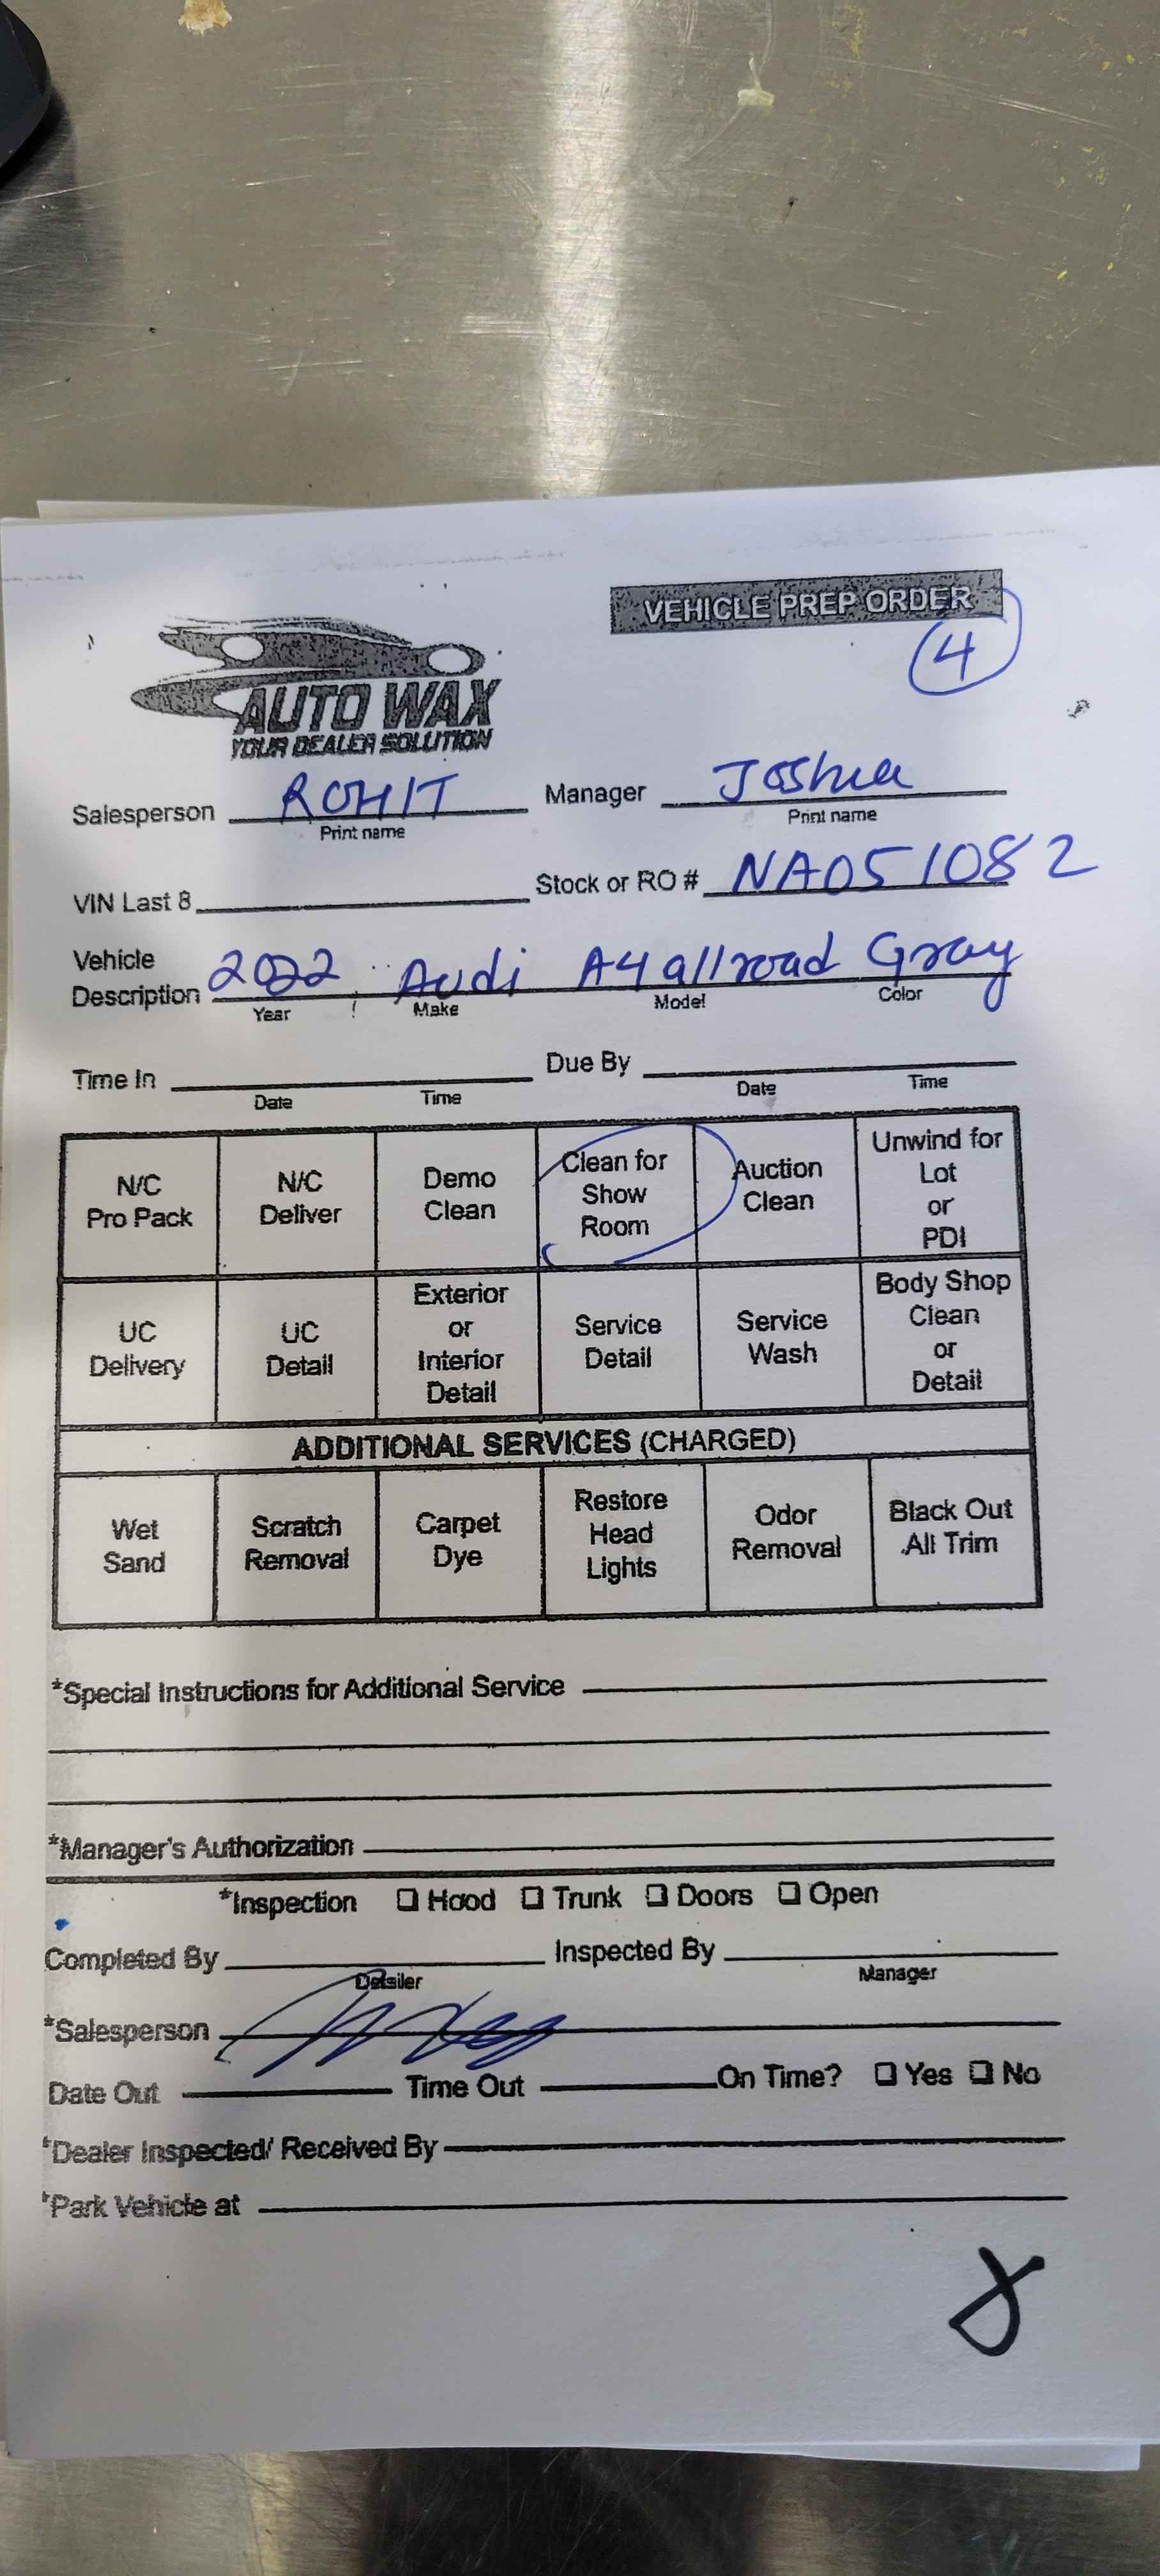 VEHICLE PREP ORDER
4
AUTO WAX
YOUR DEALER SOLUTION
Salesperson ROHIT Manager Joshua
Print name Print name
VIN Last 8 Stock or RO # NA051082
Vehicle Description 2022 Audi A4 allroad Gray
Year Make Model Color
Time In Due By
Date Time Date Time
N/C Pro Pack
N/C Deliver
Demo Clean
Clean for Show Room
Auction Clean
Unwind for Lot or PDI
UC Delivery
UC Detail
Exterior or Interior Detail
Service Detail
Service Wash
Body Shop Clean or Detail
ADDITIONAL SERVICES (CHARGED)
Wet Sand
Scratch Removal
Carpet Dye
Restore Head Lights
Odor Removal
Black Out All Trim
*Special Instructions for Additional Service
*Manager's Authorization
*Inspection Hood Trunk Doors Open
Completed By Inspected By
Detailer Manager
*Salesperson
Date Out Time Out On Time? Yes No
*Dealer Inspected/ Received By
*Park Vehicle at